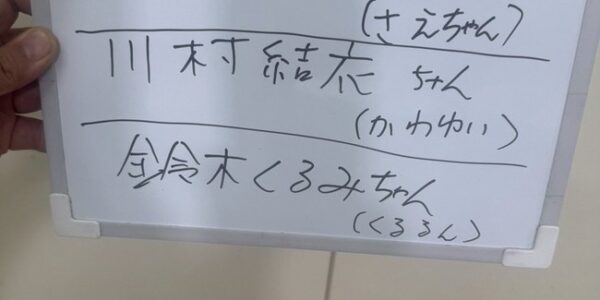 (さえちゃん)
川村結衣ちゃん
(かわゆい)
金鈴木くるみちゃん
(くるるん)